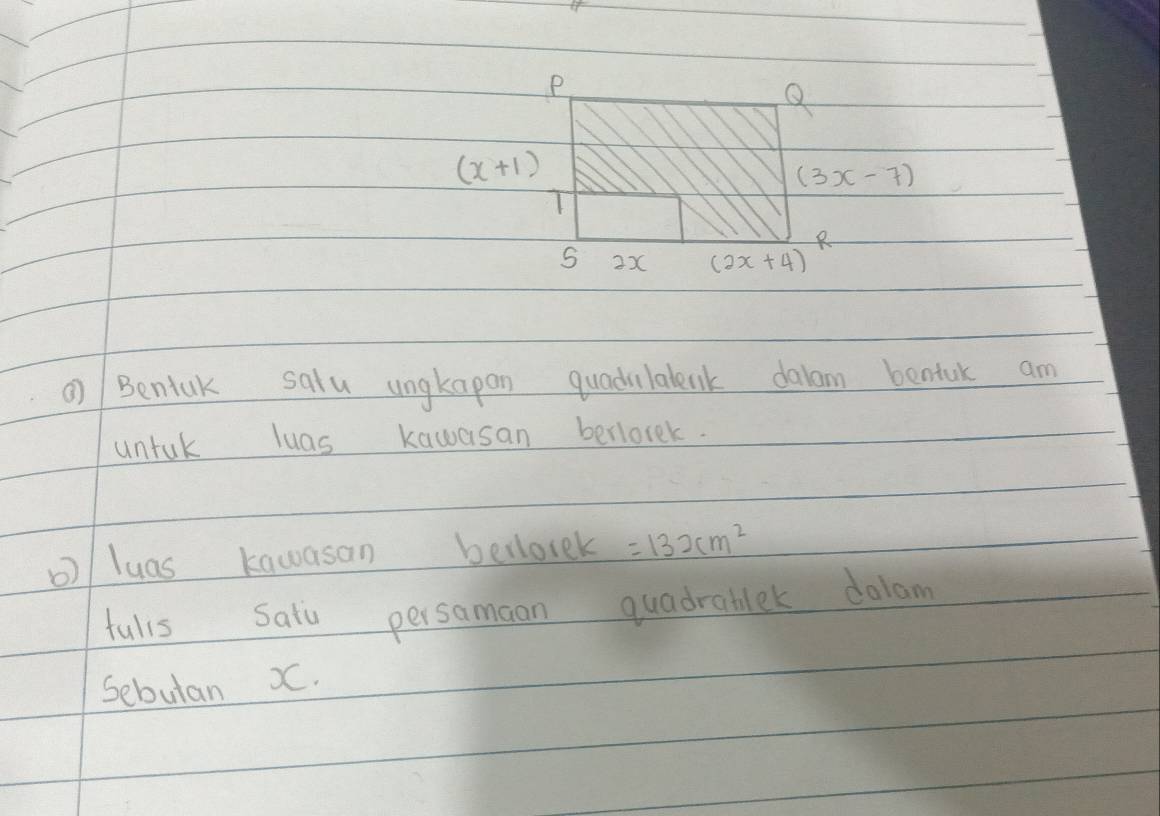 P
Q
(x+1)
(3x-7)
T
S 2x (2x+4) R
a) Bentuk satu ungkapan quadrilaterik dalam bentuk am
untuk luas kawasan berlorek.
b) luas kawasan berlorek = 132cm²
tulis satu persamaan quadratilek dalam
Sebutan x.